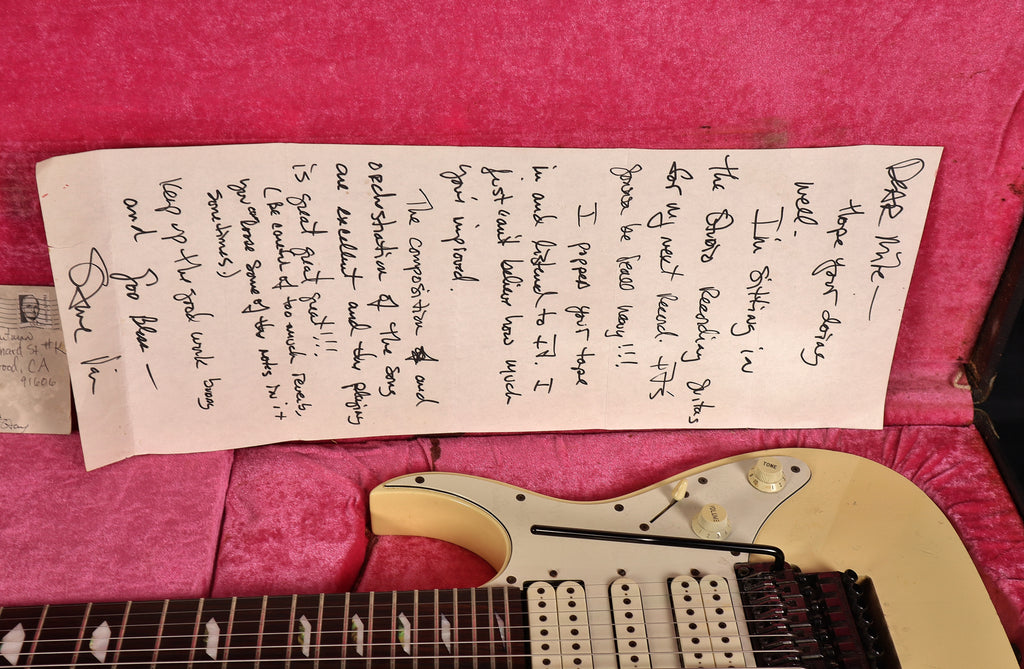 DEAR Mike —
Hope your doing
well.
I'm sitting in
the studio Recording guitas
for my next Record. It's
gonna be Real heavy!!!
I popped your tape
in and listened to it. I
Just can't believe how much
you've improved.
The composition and
orchestration of the song
are excellent and the playing
is great great great!!!
(Be careful of too much reverb,
you loose some of the notes in it
sometimes.)
Keep up the good work boog
and God Bless —
Steve Vai
St #K
ood, CA
91606
TONE
VOLUME